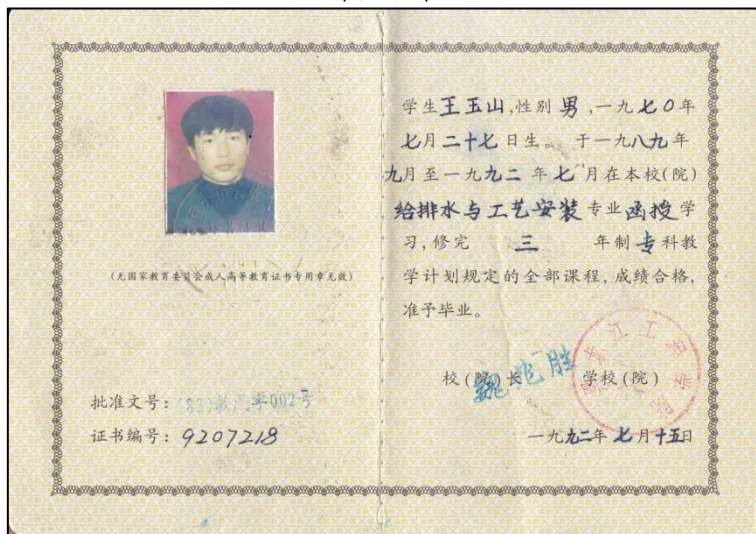 (无国家教育委员会成人高等教育证书专用章无效)
批准文号:(83)教 字002号
证书编号:9207218
学生王玉山,性别男,一九七〇年
七月二十七日生。于一九八九年
九月至一九九二年七月在本校(院)
给排水与工艺安装专业函授学
习,修完 三 年制专科教
学计划规定的全部课程,成绩合格,
准予毕业。
校(院)长 学校(院)
一九九二年七月十五日